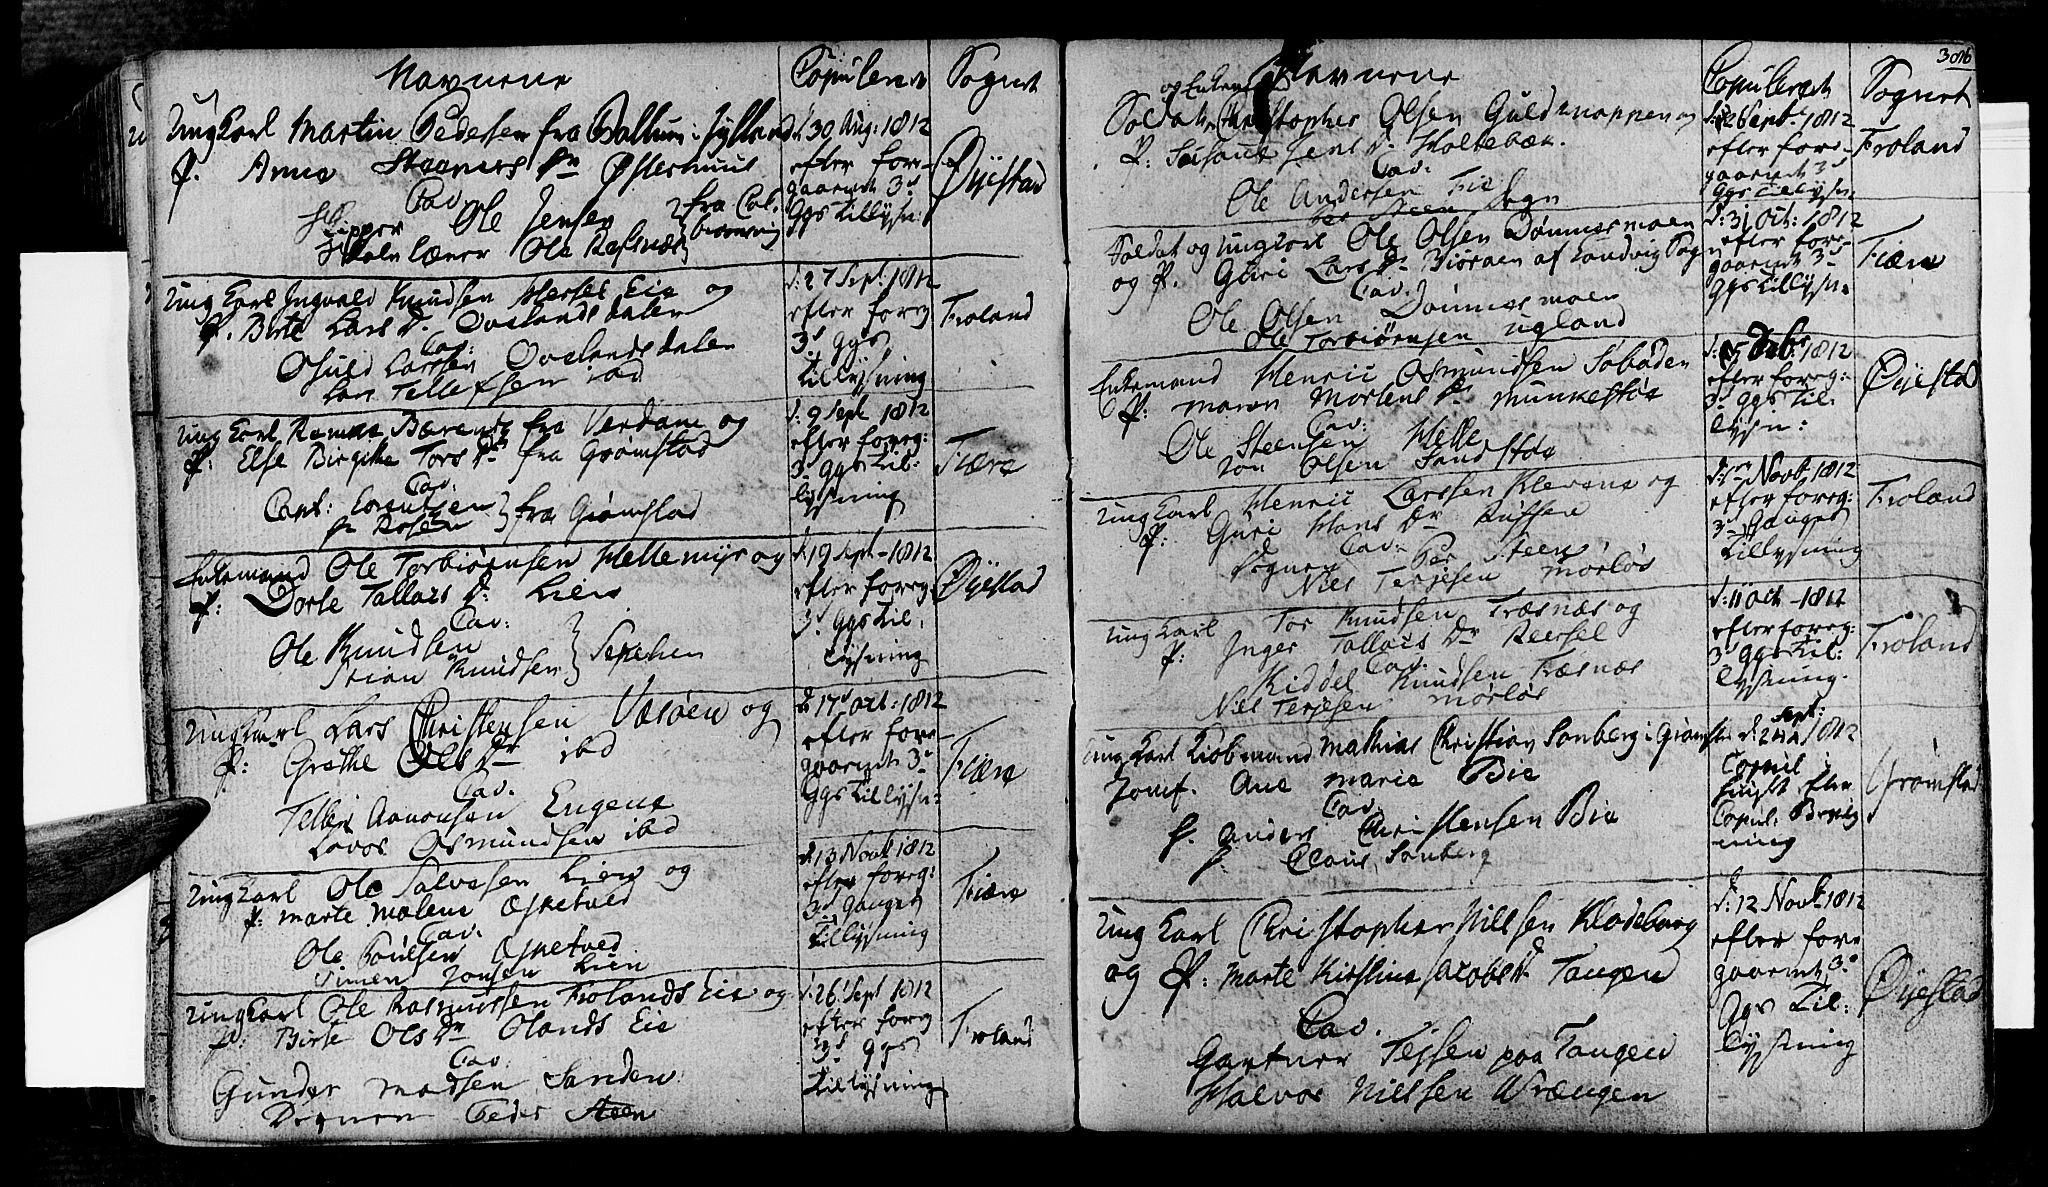 Navnene
Copuleret
Sognet
Ung Karl Martin Pedersen fra Ballum i Jylland
P. Anne Steeners Dr Østerhuus
Cav
Skipper Ole Jensen
Ole Refsnæs
d: 30 Aug: 1812
efter fore-
gaaende 3d
Ggs Tillysn:
Øyestad
Ung Karl Ingvald Knudsen Herses Eie og
P. Birte Lars D. Ovelandsdalen
Cav:
Osuld Larsen Ovelandsdalen
Lars Tellefsen ibd
d: 27 Sept 1812
efter foreg
3d Ggs
Tillysning
Froland
Ung Karl Remke Barends fra Verdam og
P: Else Birgithe Tors Dr fra Grømstad
Cav.
Capt: Lorentzen
hr Rosen
fra Grømstad
d: 9 Sept 1812
efter foreg:
3d Ggs Til:
lysning
Fiære
Enkemand Ole Torbiørnsen Hellemyr og
P: Dorte Tallais Dr Lien
Cav:
Ole Knudsen
Stian Knudsen
d: 19 Sept- 1812
efter foreg
3d Ggs Til.
lysning
Øyestad
Ung Karl Lars Christensen Vesøen og
P: Grethe Ols Dr ibd
Cav.
Tellef Aanonsen Engene
Lavos Osmundsen ibd
d 17d Oct: 1812
efter fore-
gaaende 3d
Ggs Tillysn:
Fiære
Ung Karl Ole Salvesen Lien og
P: Marte Malene Æsketved
Cav.
Ole Poulsen Æsketved
Simen Jonsen Lien
d 13 Novb 1812
efter foreg:
3d Ganget
Tillysning
Fiære
Ung Karl Ole Rasmussen Frolands Eie og
P: Birte Ols Dr Olands Eie
Cav:
Gunder Madsen Sanden
Degnen Peder Steen
d: 26 Sept 1812
efter foreg
3d Ggs
Tillysning
Froland
308b
Navnene
Copuleret
Sognet
og Enkem
Soldat Christopher Olsen Guldknappen og
P: Susanne Jens D. Holtebæk.
Cav:
Ole Andersen Bie
Per Steen Degn
d: 26 Septb 1812
efter fore-
gaaende 3d
Ggs Tillysn:
Froland
Soldat og ungkarl Ole Olsen Dømmesmoen
og P. Guri Lars Dr Biøraen af Landvig Sogn
Cav:
Ole Olsen Dømmesmoen
Ole Torbiørnsen Ugland
d: 31 Oct: 1812
efter fore-
gaaende 3d
Ggs Tillysn:
Fiære
Enkemand Henric Osmundsen Søbøden
P: Maren Mortens Dr Munkestøe
Cav:
Ole Steensen Helle
Jon Olsen Sandstøe
1812
efter foreg:
3d Ggs Til.
lysn:
Øyestad
Ung Karl Henric Larssen Klevene og
P: Guri Hans Dr Russen
Cav:
Degnen Per Steen
Niels Terjesen Mørløs
d: 1ste Novb 1812
efter foreg:
3d Ganges
Tillysning
Froland
Ung Karl Tor Knudsen Træsnæs og
P: Inger Tallais Dr Reersel
Cav.
Kiddel Knudsen Træsnæs
Niels Terjesen Mørløs
d: 11 Oct- 1812
efter foreg:
3d Ggs Til:
lysning.
Froland
Ung Karl Kiøbmand Mathias Christian Sonberg i Grømstad
Jomf. Ane Marie Bie
Cav.
h. Anders Christensen Bie
h. Claus Sonberg
Sept:
d 24de 1812
Copul
huset efter
Copul: Bevilg
ning
Grømstad
Ung Karl Christopher Nielsen Klodeborg
og P: Marte Kirstine Jacobs D. Tangen
Cav.
Gartner Tessen paa Tangen
Halvor Nielsen Vrængen
d: 12 Novb 1812
efter fore
gaaende 3d
Ggs Til:
lysning
Øyestad